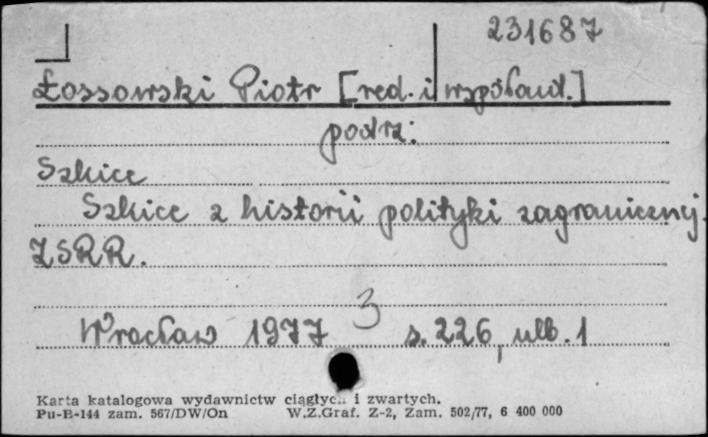 231687
Łossowski Piotr [red. i współaut.]
podrz:
Szkice
Szkice z historii polityki zagranicznej
ZSRR.
3
Wrocław 1977 s. 226, nlb. 1
Karta katalogowa wydawnictw ciągłych i zwartych.
Pu-B-144 zam. 567/DW/On W.Z.Graf. Z-2, Zam. 502/77, 6 400 000